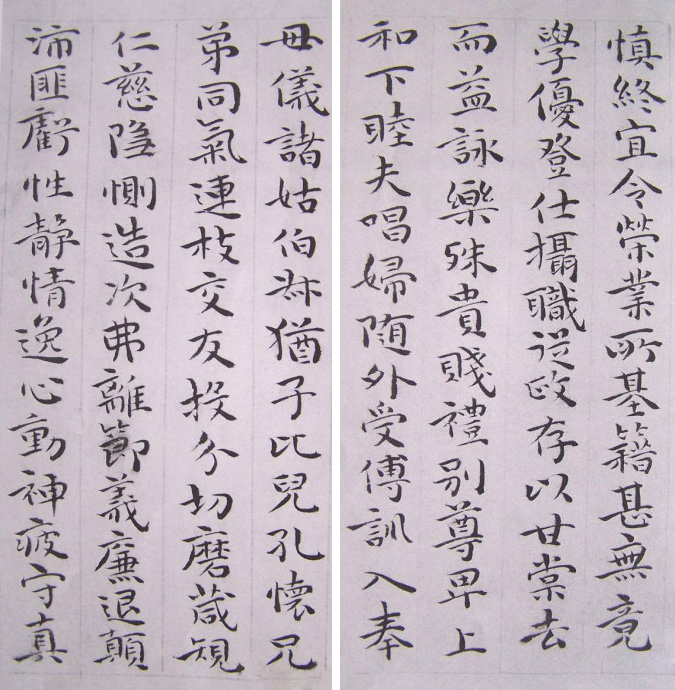 慎終宜令榮業所基籍甚無竟
學優登仕攝職從政存以甘棠去
而益詠樂殊貴賤禮別尊卑上
和下睦夫唱婦随外受傅訓入奉
母儀諸姑伯叔猶子比兒孔懷兄
弟同氣連枝交友投分切磨箴規
仁慈隐惻造次弗離節義廉退顛
沛匪虧性静情逸心動神疲守真